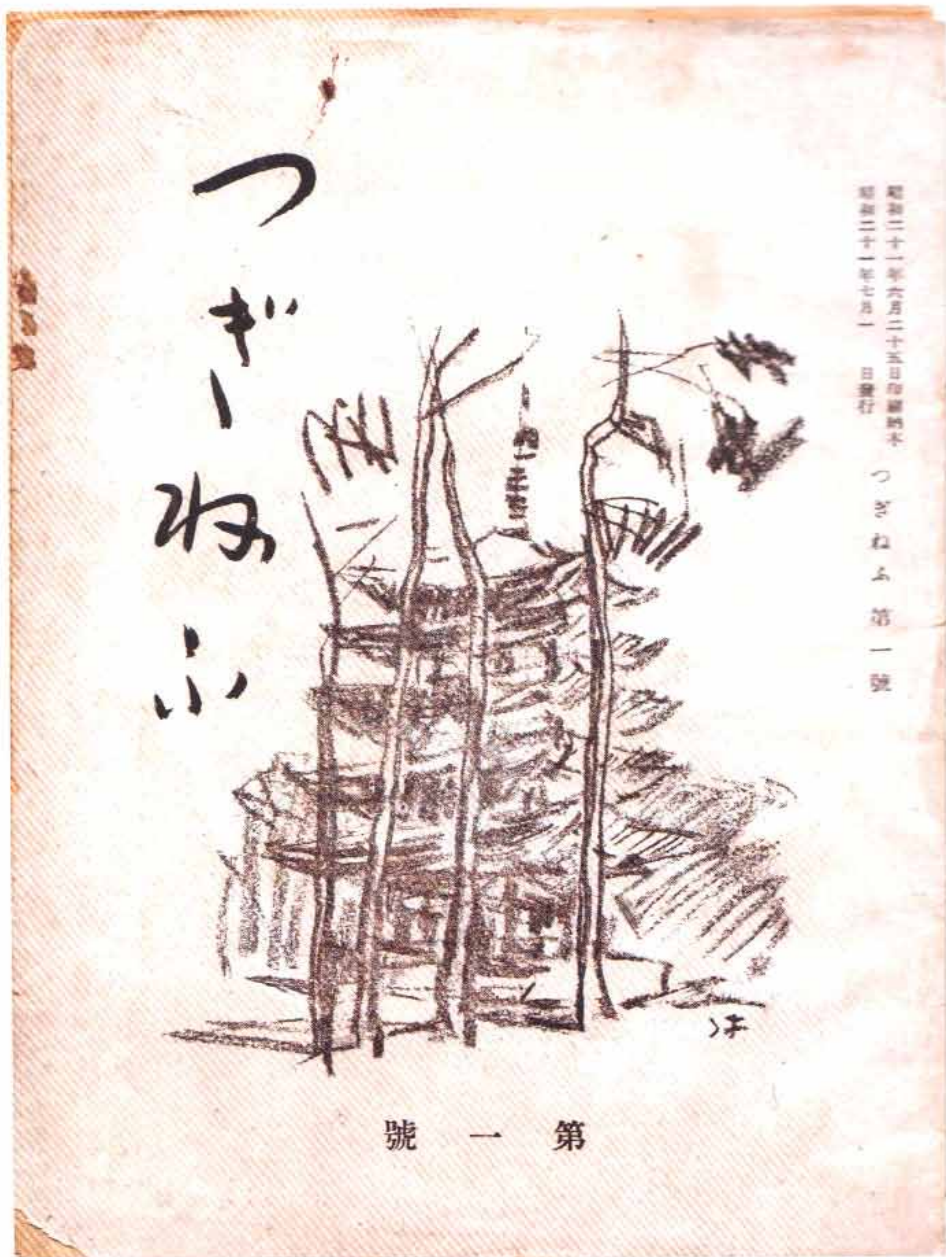 昭和二十一年六月二十五日印刷納本
昭和二十一年七月一 日發行
つぎねふ 第一號
つぎねふ
第一號